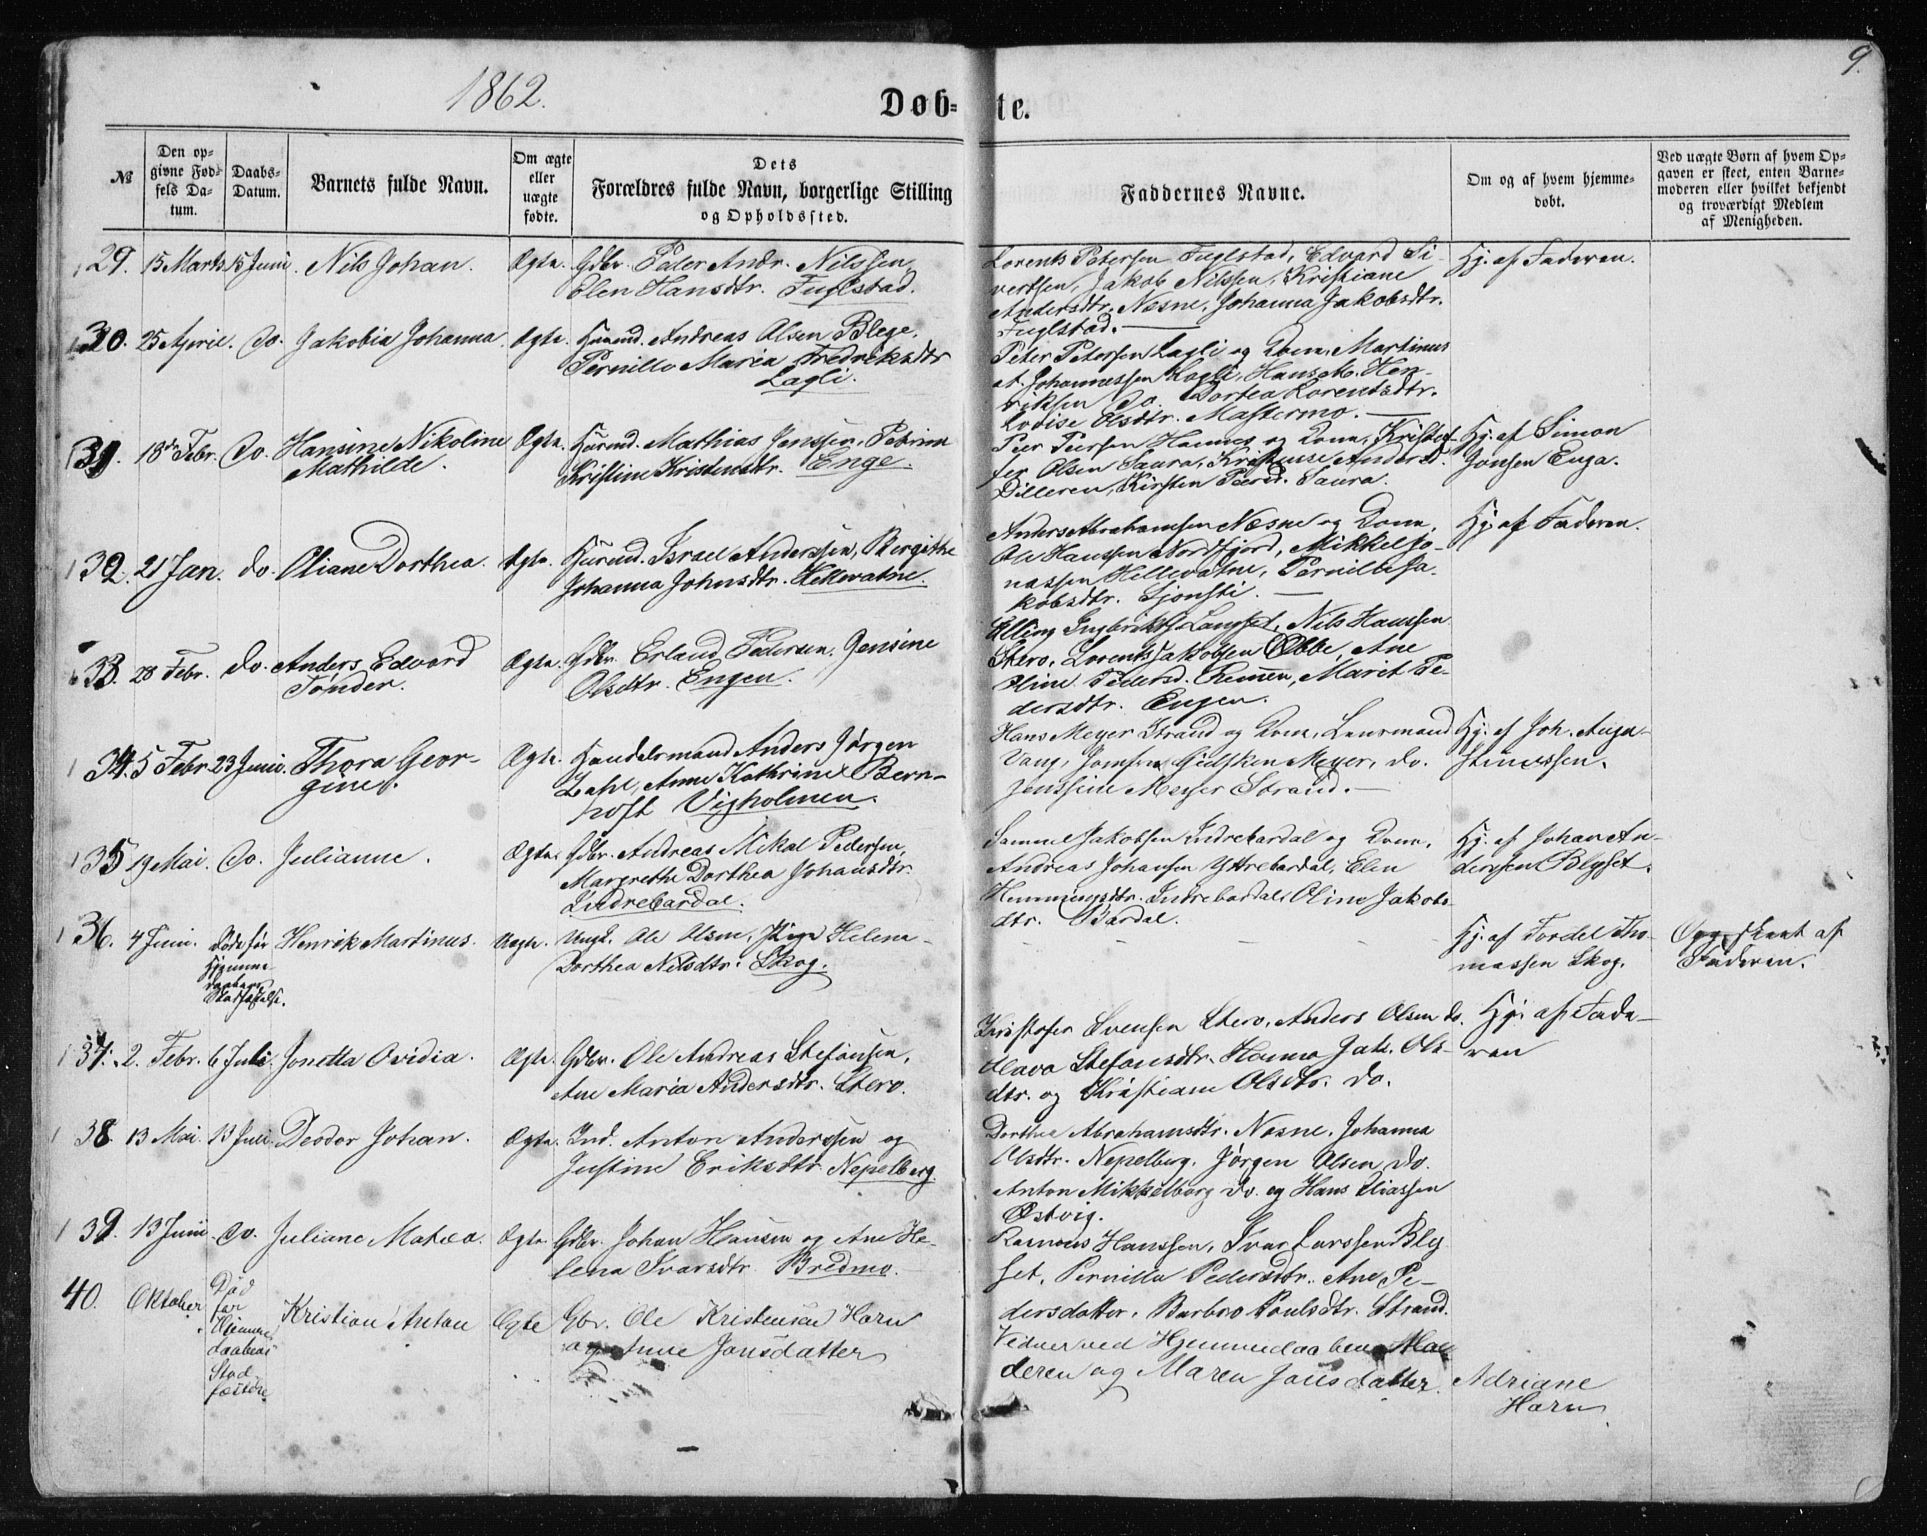 1862.
Døb-te.
9.
№
Den op-
givne Fød-
sels Da-
tum.
Daabs-
Datum.
Barnets fulde Navn.
Om ægte
eller
uægte
fødte.
Dets
Forældres fulde Navn, borgerlige Stilling
og Opholdssted.
Faddernes Navne.
Om og af hvem hjemme-
døbt.
Ved uægte Børn af hvem Op-
gaven er skeet, enten Barne-
moderen eller hvilket bekjendt
og troværdigt Medlem
af Menigheden.
29. 15 Marts 15 Juni. Nils Johan. Ægte. Gdbr. Peter Andr. Nilssen,
Elen Hansdtr. Fuglstad.
Lorents Petersen Fuglstad, Edvard Si-
vertsen, Jakob Nilssen, Kristiane
Andersdtr. Næsne, Johanna Jakobsdtr.
Fuglstad.
Hj. af Faderen.
30. 25 April. do. Jakobia Johanna. Ægte. Huusmd. Andreas Olsen Blege,
Pernille Maria Fredriksdtr
Lagli.
Peter Petersen Lagli og Kone, Martinus
Johannessen Lagli, Hans M. Hen-
riksen do. Dortea Lorentsdtr.
Lovise Olsdtr. Mastermo.
31. 18de Febr. do. Hansine Nikoline
Mathilde.
Ægte. Huusmd. Mathias Jenssen, Petrine
Kristine Kristensdtr. Enge.
Peer Peersen Hamnes og Kone, Kristof-
fer Olsen Saura, Kristense Andersd.
Dilleren, Kirsten Peersd. Saura.
Hj. af Simon
Jonsen Enga.
32. 21 Jan. do. Oliane Dorthea. Ægte. Huusmd. Israel Anderssen, Bergithe
Johanna Johnsdtr. Hellevatne.
Anders Abrahamsen Næsne og Kone,
Ole Hanssen Nordfjord, Mikkel Jo-
nassen Hellevatne, Pernille Ja-
kobsdtr. Sjonsti.
Hj. af Faderen.
33. 28 Febr. do. Anders Edvard
Tønder.
Ægte. Gdbr. Erland Pedersen, Jensine
Olsdtr. Engen.
Elling Ingbrikts. Langset, Nils Hanssen
Stero, Lorents Jakobsen Æbbe, Ane
Oline Pedersd. Remmen, Marit Pe-
dersdtr. Engen.
34. 5 Febr 29 Juni. Thora Geor-
gine.
Ægte. Handelsmand Anders Jørgen
Zahl, Anne Kathrine Bern-
hoft Vigholmen.
Hans Meyer Strand og Kone, Lensmand
Vang, Jomfru Gidsken Meyer, do.
Jenssine Meyer Strand.
Hj. af Joh. Augu-
stinussen.
35. 19 Mai do. Julianne. Ægte. Gdbr. Andreas Mikal Pedersen,
Margrethe Dorthea Johansdtr.
Indrebardal.
Samuel Jakobsen Indrebardal og Kone,
Andreas Johansen Yttrebardal, Elen
Hemmingsdtr. Indrebardal, Oline Jakobs-
dtr. Bardal.
Hj. af Johan An-
derssen Blyset.
36. 4 Juni. Døde før
Hjemme-
daabens
Stadfæstelse.
Henrik Martinus. Uægte. Ungk. Ole Olsen, Pige Helena
Dorthea Nilsdtr. Skog.
Hj. af Tordel Tho-
massen Skog.
Opg. skeet af
Faderen.
37. 2. Febr. 6 Juli. Jonetta Ovidia. Ægte. Gdbr. Ole Andreas Stefansen,
Ane Maria Andersdtr. Stero.
Kristofer Svensen Stero, Anders Olsen do.
Olava Stefansdtr. Hanna Jak. Ols-
dtr. og Kristiane Olsdtr. do.
Hj. af Fade-
ren
38. 13 Mai. 13 Juli. Teodor Johan. Ægte. Ind. Anton Anderssen og
Justine Eriksdtr. Nepelberg.
Dorthea Abrahamsdtr. Næsne, Johanna
Olsdtr. Nepelberg, Jørgen Olsen do.
Anton Mikkelborg do. og Hans Eliassen
Østvig.
39. 13 Juni do. Juliane Matea. Ægte. Gdbr. Johan Hansen og Ane He-
lena Ivarsdtr. Bredmo.
Rasmus Hanssen, Ivar Larssen Bly-
set, Pernilla Pedersdtr. Ane Pe-
dersdatter, Barbro Poulsdtr. Strand.
40. Oktober Død
før
Hjemme
daabens
Stad
fæstelse
Kristian Antan Ægte Gbr. Ole Kristensen Horn
og Anne Jonsdatter
Vidner ved Hjemmedaaben Mo-
deren og Maren Jonsdatter.
Adriane
Horn